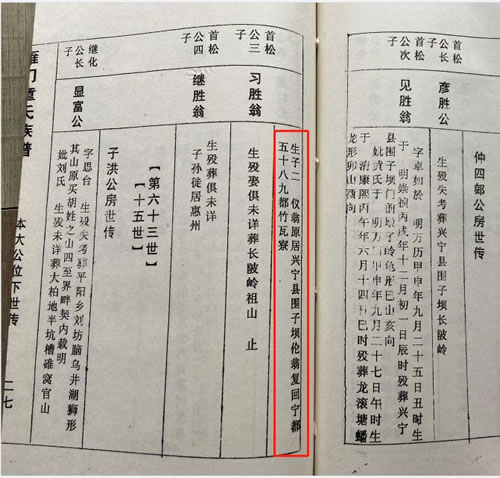 首松
公长
子
彦胜公
仲四郎公房世传
生殁失考葬兴宁县围子坝长陂岭
首松
公次
子
见胜翁
字卓如於 明万历甲申年九月二十五日丑时生
于 明崇祯丙戌年十二月初一日辰时殁葬兴宁
龟形巳山亥向
妣黄氏于 明万
申年九月二十七日午时生
于 清康熙丙午年六月十四日巳时殁葬龙滚塘蟠
龙形卯山酉向
生子二 仪翁原居兴宁县围子坝伦翁复回宁都
五十八九都竹瓦寮
首松
公三
子
习胜翁
生殁娶俱未详葬长陂岭祖山 止
首松
公四
子
继胜翁
生殁葬俱未详
子孙徒居惠州
【第六十三世】
【十五世】
继化
公长
子
显富公
子洪公房世传
字思台 生殁失考葬平阳乡刘坊脑乌井湖狮形
其山原买胡姓之山四至界畔契内载明
妣刘氏 生殁未详葬大柏地半坑槽碓窝官山
雁门童氏族谱
本大公位下世传
二七